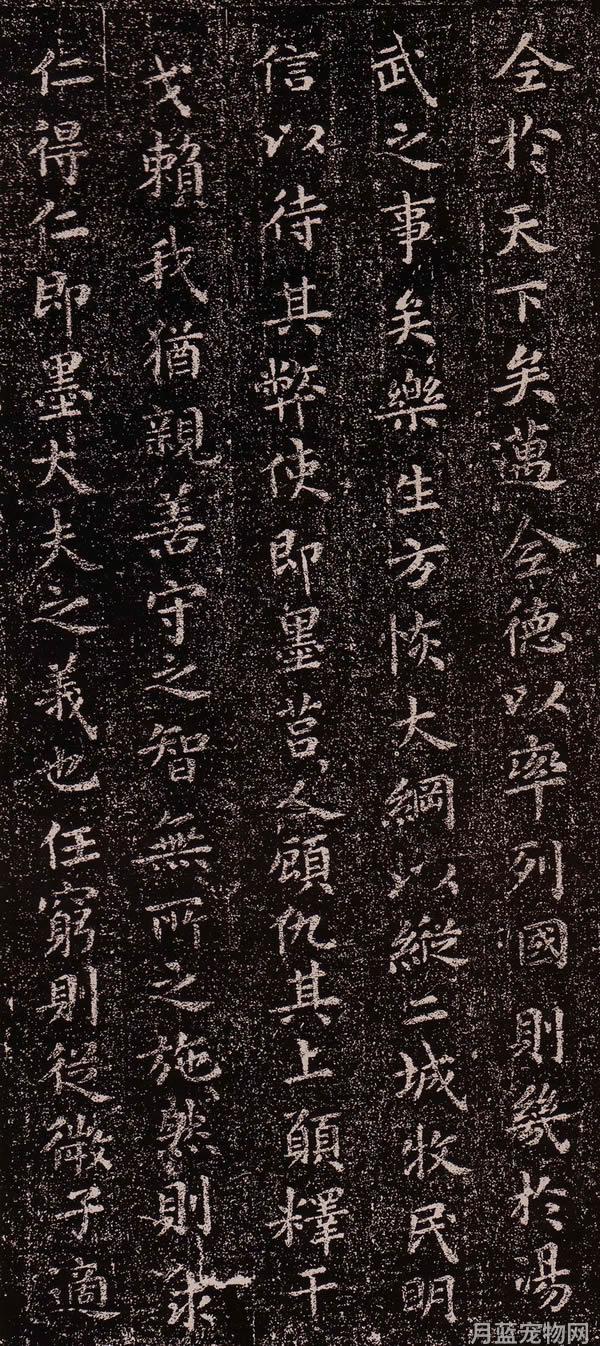 全於天下矣邁全德以率列國則幾於湯
武之事矣樂生方恢大綱以縱二城牧民明
信以待其弊使即墨莒人顧仇其上願釋干
戈賴我猶親善守之智無所之施然則求
仁得仁即墨大夫之義也任窮則從微子適
月蓝宠物网